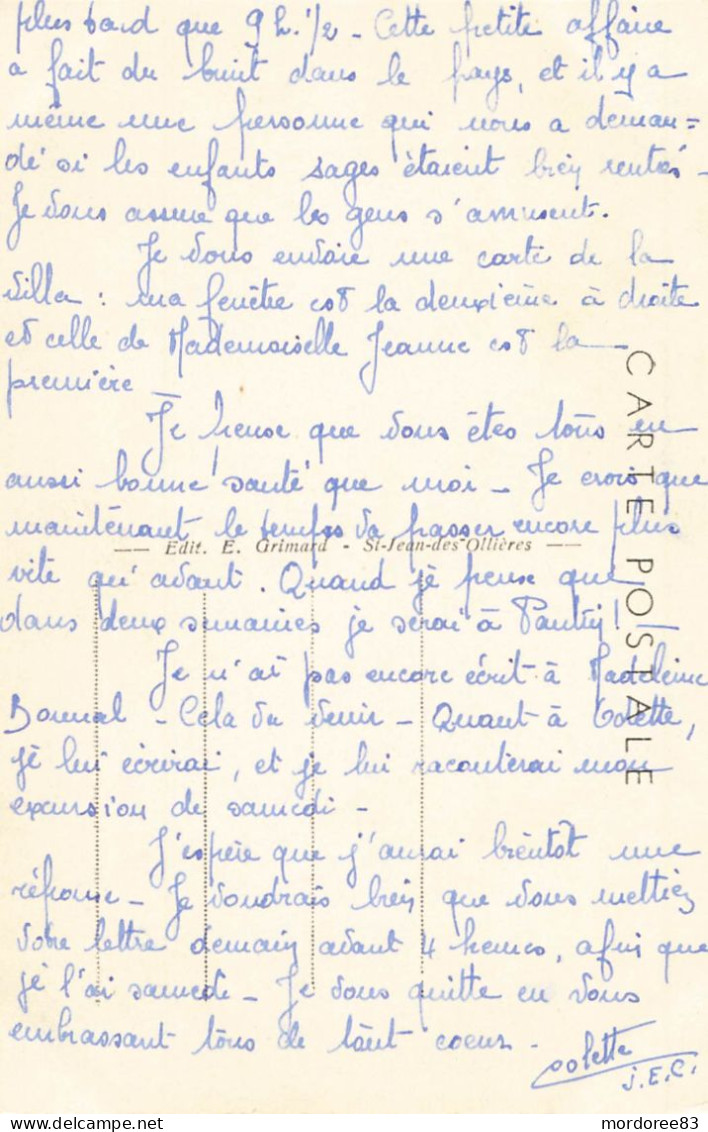 plus tard que 9 h. 1/2 - Cette petite affaire
a fait du bruit dans le pays, et il y a
même une personne qui nous a deman=
dé si les enfants sages étaient bien rentrés -
Je vous assure que les gens s'amusent.
Je vous envoie une carte de la
villa : ma fenêtre est la deuxième à droite
et celle de Mademoiselle Jeanne est la
première -
Je pense que vous êtes tous en
aussi bonne santé que moi - Je crois que
maintenant le temps va passer encore plus
-- Edit. E. Grimard - St-Jean-des-Ollières --
vite qu'avant. Quand je pense que
dans deux semaines je serai à !
Je n'ai pas encore écrit à Madeleine
- Cela va venir - Quant à Colette,
je lui écrirai, et je lui raconterai mon
excursion de samedi -
J'espère que j'aurai bientôt une
réponse - Je voudrais bien que vous mettiez
votre lettre demain avant 4 heures, afin que
je l'ai samedi - Je vous quitte en vous
embrassant tous de tout coeur -
colette
J.E.C.
CARTE POSTALE
www.delcampe.net
mordoree83